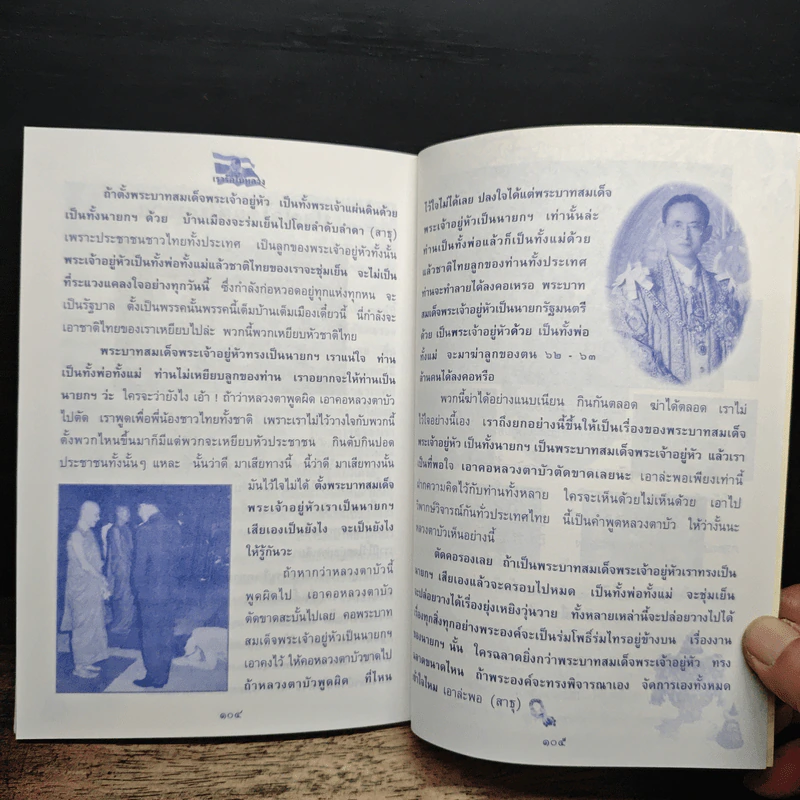 เขารักในหลวง
ถ้าตั้งพระบาทสมเด็จพระเจ้าอยู่หัว เป็นทั้งพระเจ้าแผ่นดินด้วย
เป็นทั้งนายกฯ ด้วย บ้านเมืองจะร่มเย็นไปโดยลำดับลำดา (สาธุ)
เพราะประชาชนชาวไทยทั้งประเทศ เป็นลูกของพระเจ้าอยู่หัวทั้งนั้น
พระเจ้าอยู่หัวเป็นทั้งพ่อทั้งแม่แล้วชาติไทยของเราจะชุ่มเย็น จะไม่เป็น
ที่ระแวงแคลงใจอย่างทุกวันนี้ ซึ่งกำลังก่อหวอดอยู่ทุกแห่งทุกหน จะ
เป็นรัฐบาล ตั้งเป็นพรรคนั้นพรรคนี้เต็มบ้านเต็มเมืองเดี๋ยวนี้ นี่กำลังจะ
เอาชาติไทยของเราเหยียบไปล่ะ พวกนี้พวกเหยียบหัวชาติไทย
พระบาทสมเด็จพระเจ้าอยู่หัวทรงเป็นนายกฯ เราแน่ใจ ท่าน
เป็นทั้งพ่อทั้งแม่ ท่านไม่เหยียบลูกของท่าน เราอยากจะให้ท่านเป็น
นายกฯ ว่ะ ใครจะว่ายังไง เอ้า ! ถ้าว่าหลวงตาพูดผิด เอาคอหลวงตาบัว
ไปตัด เราพูดเพื่อพี่น้องชาวไทยทั้งชาติ เพราะเราไม่ไว้วางใจกับพวกนี้
ตั้งพวกไหนขึ้นมาก็มีแต่พวกจะเหยียบหัวประชาชน กินตับกินปอด
ประชาชนทั้งนั้นๆ แหละ นั้นว่าดี มาเสียทางนี้ นี้ว่าดี มาเสียทางนั้น
มันไว้ใจไม่ได้ ตั้งพระบาทสมเด็จ
พระเจ้าอยู่หัวเราเป็นนายกฯ
เสียเองเป็นยังไง จะเป็นยังไง
ให้รู้กันวะ
ถ้าหากว่าหลวงตาบัวนี้
พูดผิดไป เอาคอหลวงตาบัว
ตัดขาดสะบั้นไปเลย คอพระบาท
สมเด็จพระเจ้าอยู่หัวเป็นนายกฯ
เอาคงไว้ ให้คอหลวงตาบัวขาดไป
ถ้าหลวงตาบัวพูดผิด ที่ไหน
๑๐๔
ไว้ใจไม่ได้เลย ปลงใจได้แต่พระบาทสมเด็จ
พระเจ้าอยู่หัวเป็นนายกฯ เท่านั้นล่ะ
ท่านเป็นทั้งพ่อแล้วก็เป็นทั้งแม่ด้วย
แล้วชาติไทยลูกของท่านทั้งประเทศ
ท่านจะทำลายได้ลงคอเหรอ พระบาท
สมเด็จพระเจ้าอยู่หัวเป็นนายกรัฐมนตรี
ด้วย เป็นพระเจ้าอยู่หัวด้วย เป็นทั้งพ่อ
ทั้งแม่ จะมาฆ่าลูกของตน ๖๒ - ๖๓
ล้านคนได้ลงคอหรือ
พวกนี้ฆ่าได้อย่างแนบเนียน กินกันตลอด ฆ่าได้ตลอด เราไม่
ไว้ใจอย่างนี้เอง เราถึงยกอย่างนี้ขึ้นให้เป็นเรื่องของพระบาทสมเด็จ
พระเจ้าอยู่หัว เป็นทั้งนายกฯ เป็นพระบาทสมเด็จพระเจ้าอยู่หัว แล้วเรา
เป็นที่พอใจ เอาคอหลวงตาบัวตัดขาดเลยนะ เอาล่ะพอเพียงเท่านี้
ฝากความคิดไว้กับท่านทั้งหลาย ใครจะเห็นด้วยไม่เห็นด้วย เอาไป
วิพากษ์วิจารณ์กันทั่วประเทศไทย นี้เป็นคำพูดหลวงตาบัว ให้ว่างั้นนะ
หลวงตาบัวเห็นอย่างนี้
ตัดคอรองเลย ถ้าเป็นพระบาทสมเด็จพระเจ้าอยู่หัวเราทรงเป็น
นายกฯ เสียเองแล้วจะครอบไปหมด เป็นทั้งพ่อทั้งแม่ จะชุ่มเย็น
จะปล่อยวางได้เรื่องยุ่งเหยิงวุ่นวาย ทั้งหลายเหล่านี้จะปล่อยวางไปได้
เรื่องทุกสิ่งทุกอย่างพระองค์จะเป็นร่มโพธิ์ร่มไทรอยู่ข้างบน เรื่องงาน
ของนายกฯ นั้น ใครฉลาดยิ่งกว่าพระบาทสมเด็จพระเจ้าอยู่หัว ทรง
ฉลาดขนาดไหน ถ้าพระองค์จะทรงพิจารณาเอง จัดการเองทั้งหมด
เข้าใจไหม เอาล่ะพอ (สาธุ)
๑๐๕